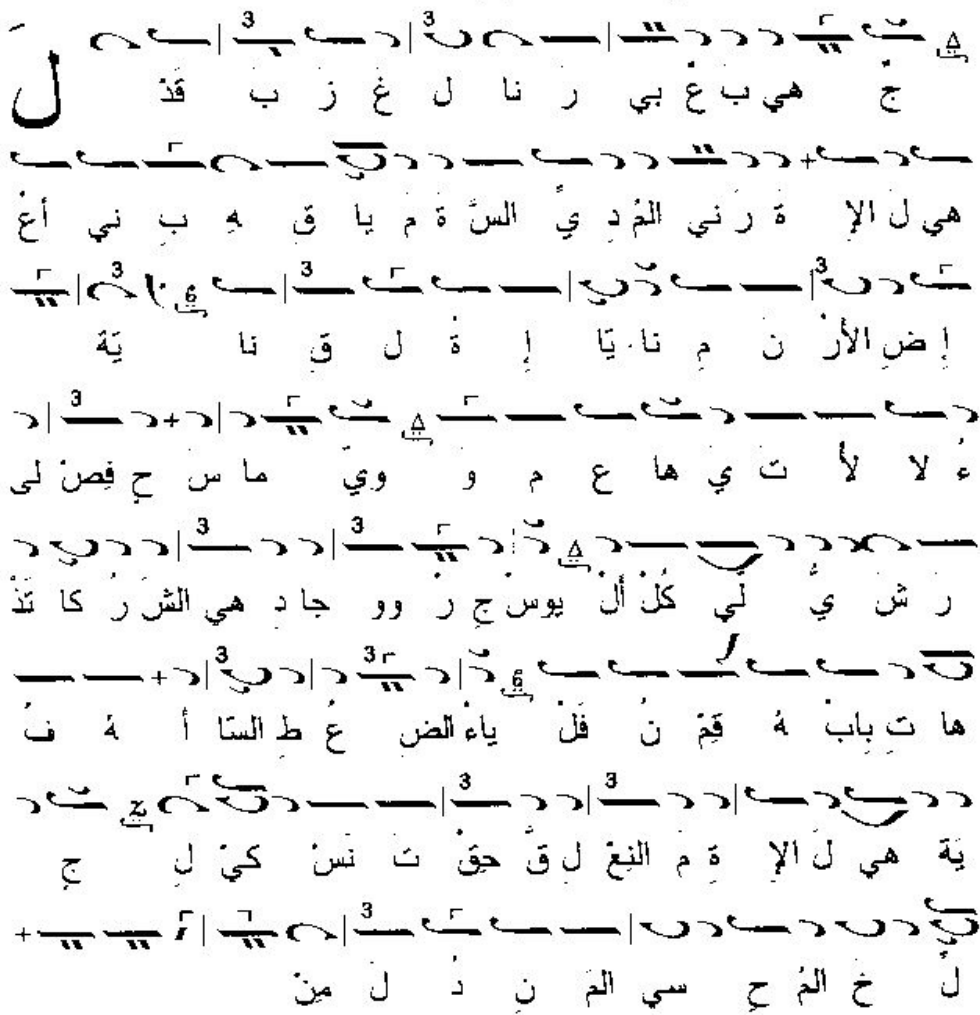 لَ قَدْ بَ زَ غَ ل نا رَ بي عٌ بَ هي جٌ
أعْ ني بِ هِ قِ يا مَ ةَ السَّ يِّ دِ المُ ني رَ ةَ الإِ لَ هي
يَّةَ نا قِ لَ ةً إِ يَّا نا مِ نَ الأرْ ضِ إِ
لى فِصْ حٍ سَ ما ويّ وَ مَ عَ ها يَ تَ لأ لا ءُ
تَذْ كا رُ الشَّ هي دِ جا وو رْ جِ يوسْ ألْ كُلْ لّي يُّ شَ رَ
فُ هُ أ السّا طِ عُ الضِ ياءْ فَلْ نُ قِمْ هُ بابْ تِ ها
جٍ لِ كيْ نَسْ تَ حِقْ قَّ لِ النِعْ مَ ةِ الإِ لَ هي يَّة
مِنْ لَ دُ نِ المَ سي حِ المُ خَ لِّ